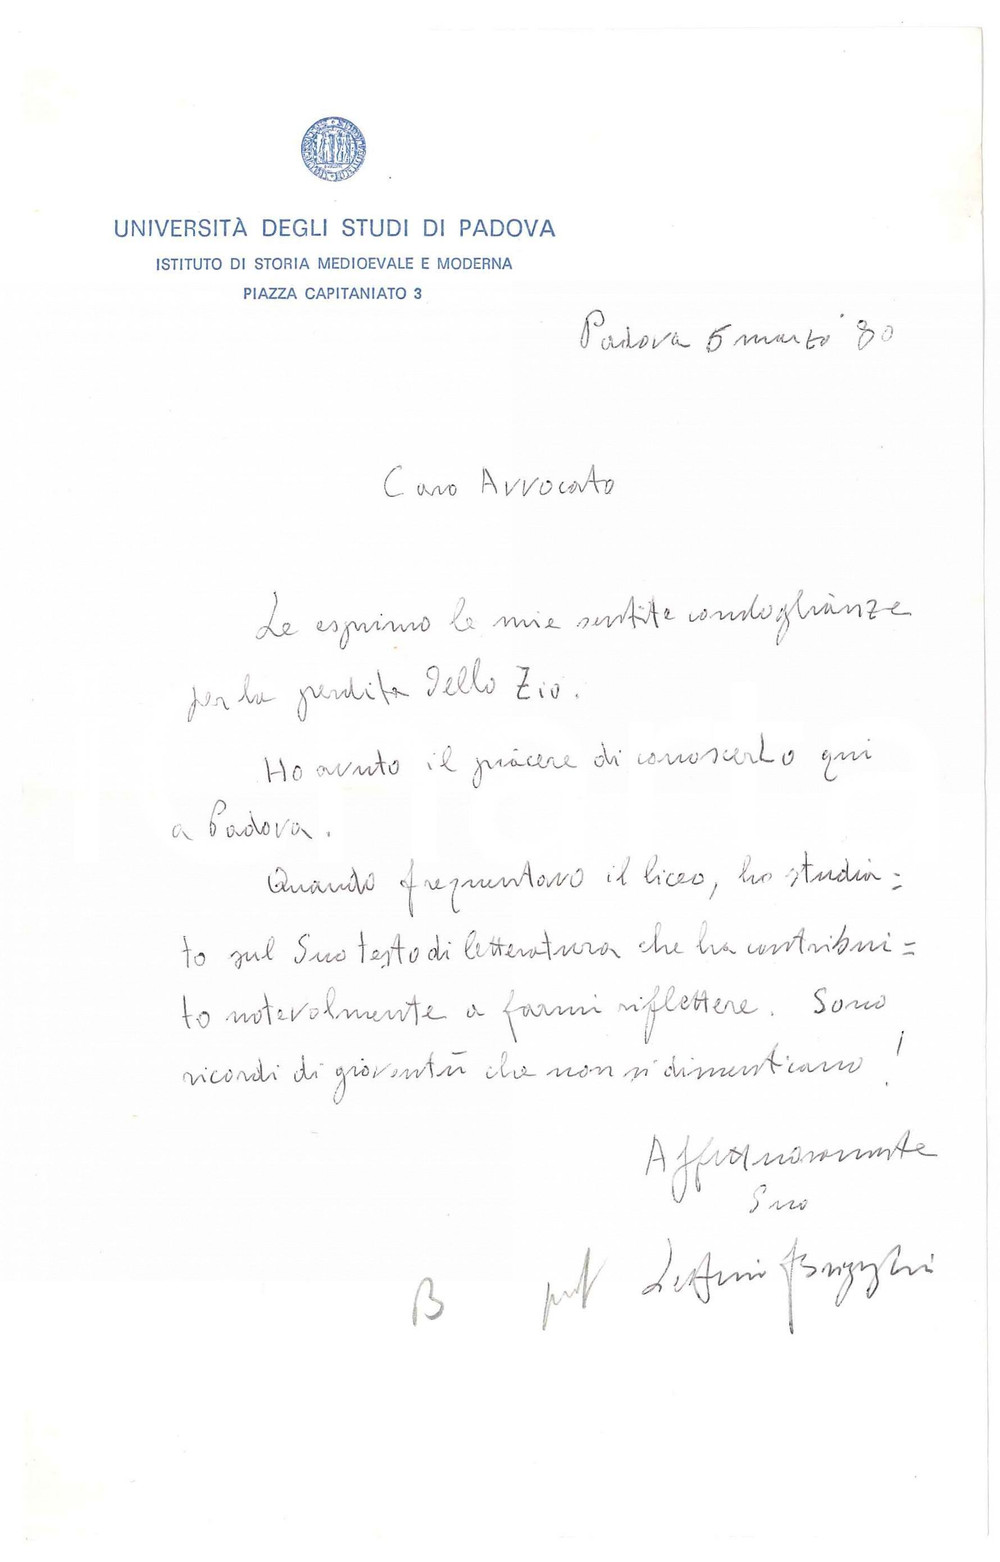 UNIVERSITÀ DEGLI STUDI DI PADOVA
ISTITUTO DI STORIA MEDIOEVALE E MODERNA
PIAZZA CAPITANIATO 3
Padova 5 marzo '80
Caro Avvocato
Le esprimo le mie sentite condoglianze
per la perdita dello Zio.
Ho avuto il piacere di conoscerlo qui
a Padova.
Quando frequentavo il liceo, ho studia=
to sul Suo testo di letteratura che ha contribui=
to notevolmente a farmi riflettere. Sono
ricordi di gioventù che non si dimenticano!
Affettuosamente
Suo
B prof